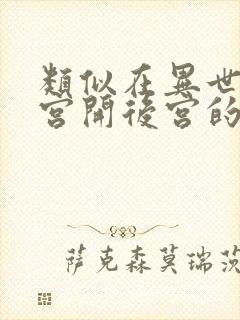 類似在異世
宮開後宮的
萨克森莫瑞茨